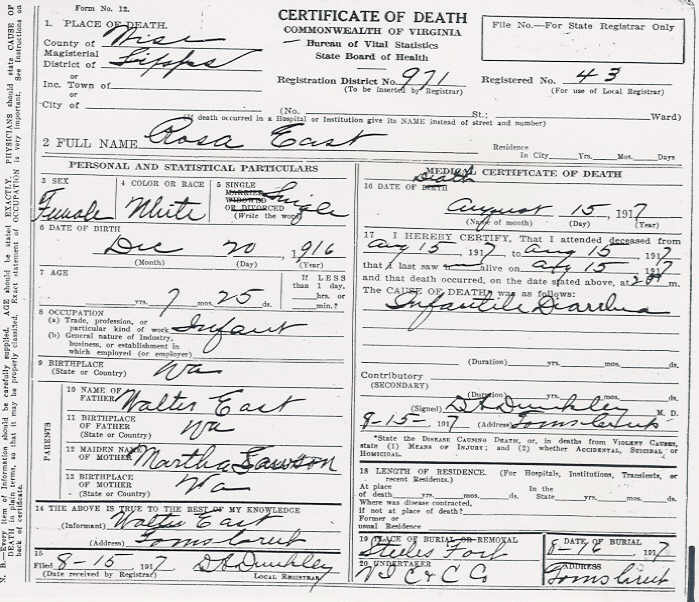 Form No. 12.
CERTIFICATE OF DEATH
COMMONWEALTH OF VIRGINIA
Bureau of Vital Statistics
State Board of Health
File No.—For State Registrar Only
1. PLACE OF DEATH.
County of Wise
Magisterial
District of Lipps
or
Inc. Town of
or
City of
Registration District No. 971
(To be inserted by Registrar)
Registered No. 43
(For use of Local Registrar)
(No. St.; Ward)
(If death occurred in a Hospital or Institution give its NAME instead of street and number)
2 FULL NAME Rosa East
Residence
In City Yrs. Mos. Days
PERSONAL AND STATISTICAL PARTICULARS
3 SEX
Female
4 COLOR OR RACE
White
5 SINGLE
MARRIED
WIDOWED
OR DIVORCED
(Write the word)
Single
6 DATE OF BIRTH
Dec 20, 1916
(Month) (Day) (Year)
7 AGE
yrs. 7 mos. 25 ds.
If LESS
than 1 day,
hrs. or
min.?
8 OCCUPATION
(a) Trade, profession, or
particular kind of work Infant
(b) General nature of industry,
business, or establishment in
which employed (or employer)
9 BIRTHPLACE
(State or Country) Va
PARENTS
10 NAME OF
FATHER Walter East
11 BIRTHPLACE
OF FATHER
(State or Country) Va
12 MAIDEN NAME
OF MOTHER Martha Lawson
13 BIRTHPLACE
OF MOTHER
(State or Country) Va
14 THE ABOVE IS TRUE TO THE BEST OF MY KNOWLEDGE
(Informant) Walter East
(Address) Toms Creek
15
Filed 8-15, 1917
(Date received by Registrar)
LOCAL REGISTRAR
MEDICAL CERTIFICATE OF DEATH
16 DATE OF DEATH
Death
August 15, 1917
(Name of month) (Day) (Year)
17 I HEREBY CERTIFY, That I attended deceased from
Aug 15, 1917, to Aug 15, 1917
that I last saw alive on Aug 15, 1917
and that death occurred, on the date stated above, at m.
The CAUSE OF DEATH* was as follows:
Infantile Diarrhea
(Duration) yrs. mos. ds.
Contributory
(SECONDARY)
(Duration) yrs. mos. ds.
(Signed) M. D.
8-15-, 1917 (Address) Toms Creek
*State the DISEASE CAUSING DEATH, or, in deaths from VIOLENT CAUSES,
state (1) MEANS OF INJURY; and (2) whether ACCIDENTAL, SUICIDAL or
HOMICIDAL.
18 LENGTH OF RESIDENCE. (For Hospitals, Institutions, Transients, or
recent Residents.)
At place
of death yrs. mos. ds.
In the
State yrs. mos. ds.
Where was disease contracted,
if not at place of death?
Former or
usual Residence
19 PLACE OF BURIAL OR REMOVAL
Steeles Fork
DATE OF BURIAL
8-16, 1917
20 UNDERTAKER
V I C & C Co
ADDRESS
Toms Creek
N. B.—Every item of information should be carefully supplied. AGE should be stated EXACTLY. PHYSICIANS should state CAUSE OF
DEATH in plain terms, so that it may be properly classified. Exact statement of OCCUPATION is very important. See instructions on
back of certificate.